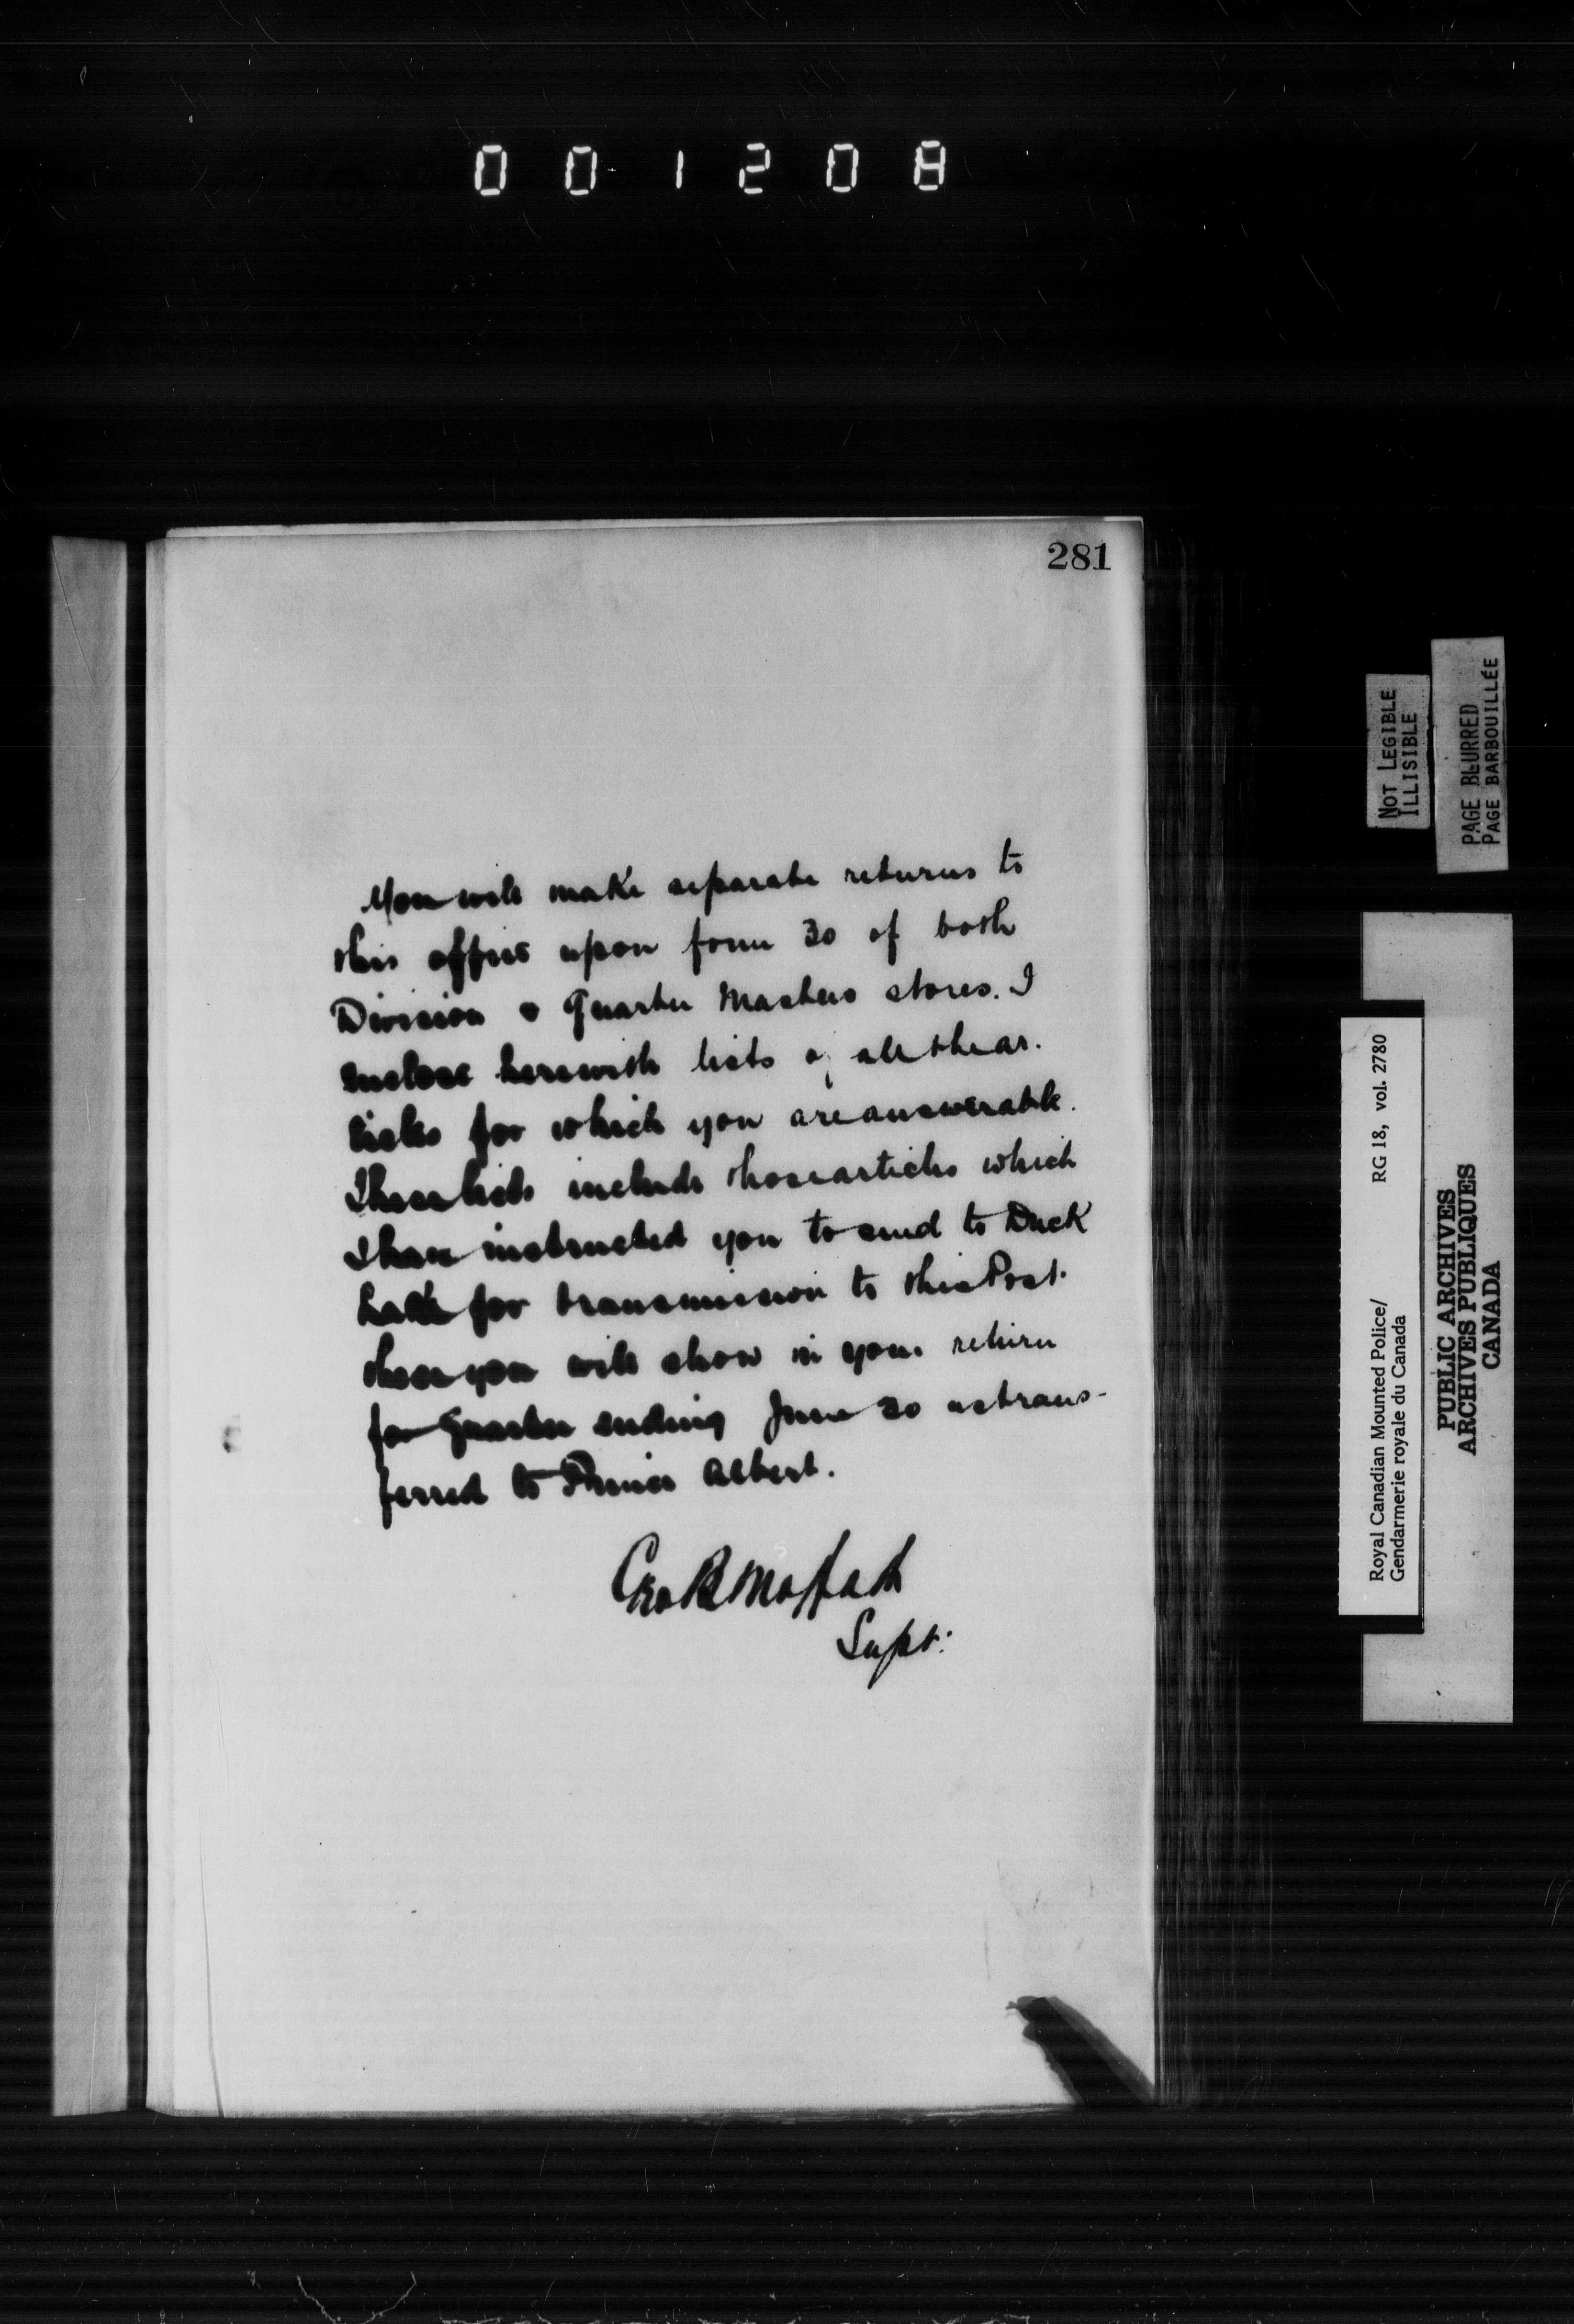 001208
281
You will make separate returns to
this office upon form 30 of both
Division & Quarter Masters stores. I
enclose herewith lists of all the ar-
ticles for which you are answerable.
These lists include those articles which
I have instructed you to send to Duck
Lake for transmission to this Post.
these you will show in your return
for Quarter ending June 30 as trans-
ferred to Prince Albert.
Geo B Moffatt
Supt:
NOT LEGIBLE
ILLISIBLE
PAGE BLURRED
PAGE BARBOUILLÉE
Royal Canadian Mounted Police/ RG 18, vol. 2780
Gendarmerie royale du Canada
PUBLIC ARCHIVES
ARCHIVES PUBLIQUES
CANADA